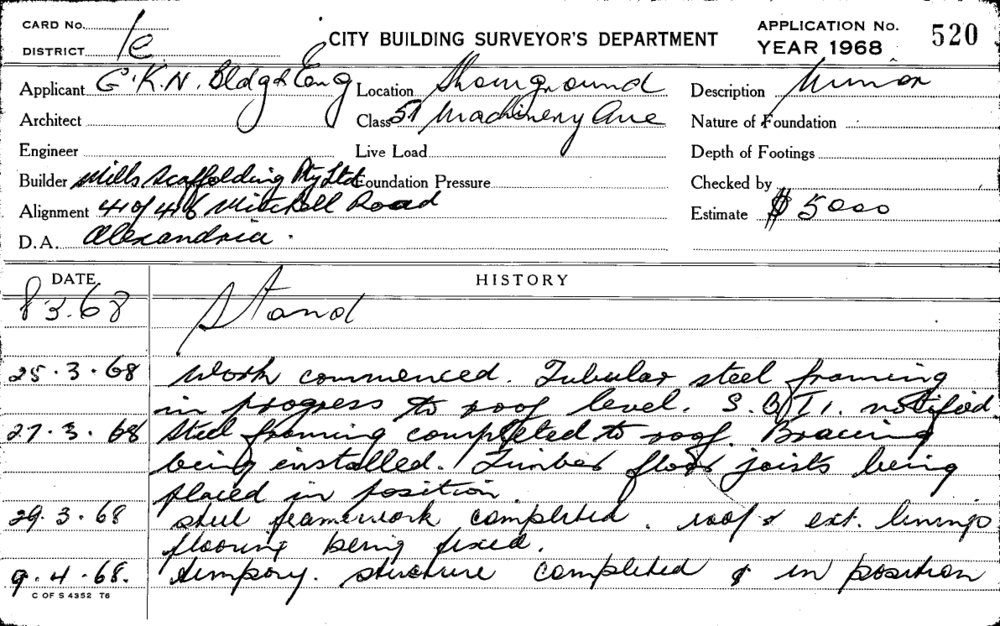 CARD No.
DISTRICT 1c
CITY BUILDING SURVEYOR'S DEPARTMENT
APPLICATION No. 520
YEAR 1968
Applicant G.K.N. Bldg & Eng Location Showground Description Minor
Architect Class 51 Machinery Ave Nature of Foundation
Engineer Live Load Depth of Footings
Builder Mills Scaffolding Pty Ltd Foundation Pressure Checked by
Alignment 41 of 46 Mitchell Road Estimate $ 5000
D.A. Alexandria.
DATE HISTORY
8 3.68 Stand
25.3.68 Work commenced. Tubular steel framing
in progress to roof level. S.B.I. notified.
27.3.68 Steel framing completed to roof. Bracing
being installed. Timber floor joists being
placed in position.
29.3.68 steel framework completed. roof & ext. linings
flooring being fixed.
9.4.68. tempory. structure completed & in position
C OF S 4352 T6